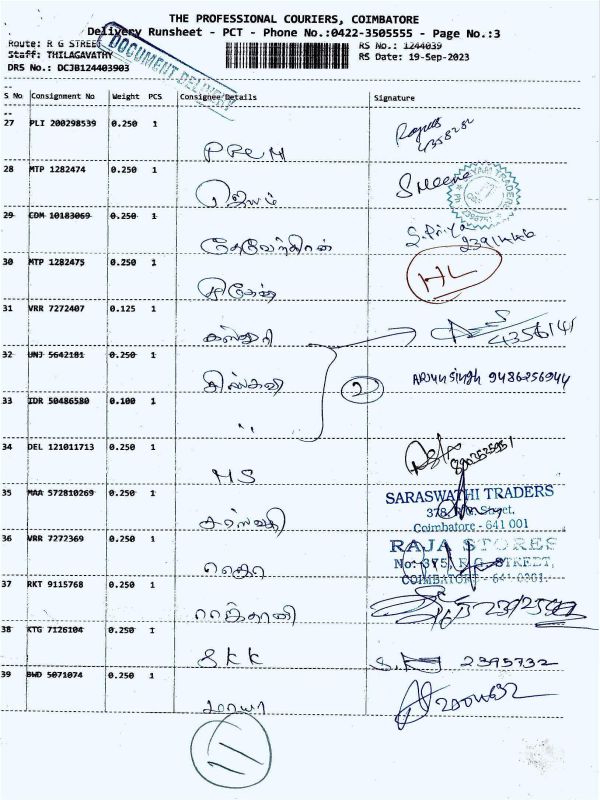 THE PROFESSIONAL COURIERS, COIMBATORE
Delivery Runsheet - PCT - Phone No.:0422-3505555 - Page No.:3
Route: R G STREET
RS No.: 1244039
Staff: THILAGAVATHY
RS Date: 19-Sep-2023
DRS No.: DCJB124403903
DOCUMENT DELIVERY
S No Consignment No Weight PCS Consignee Details Signature
27 PLI 200298539 0.250 1
4358282
28 MTP 1282474 0.250 1
ஜெயம் Smeena
TRADERS
29 CDM 10183069 0.250 1
S. Priya
2391446
30 MTP 1282475 0.250 1
HL
31 VRR 7272407 0.125 1
கஸ்தூரி 4356141
32 UNJ 5642181 0.250 1
2 Arjun singh 9486256944
33 IDR 50486580 0.100 1
"
34 DEL 121011713 0.250 1
MS
35 MAA 572810269 0.250 1
SARASWATHI TRADERS
378, R.G. Street,
Coimbatore - 641 001
சரஸ்வதி
36 VRR 7272369 0.250 1
RAJA STORES
No: 375, R.G. STREET,
COIMBATORE - 641 0301.
37 RKT 9115768 0.250 1
38 KTG 7126104 0.250 1
SKK 2395732
39 BWD 5071074 0.250 1
மாயா
11